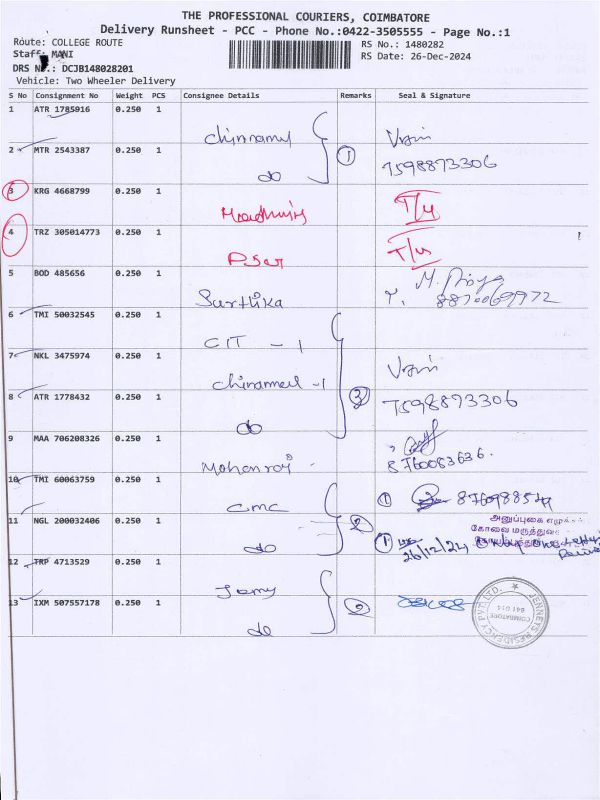 THE PROFESSIONAL COURIERS, COIMBATORE
Delivery Runsheet - PCC - Phone No.:0422-3505555 - Page No.:1
Route: COLLEGE ROUTE RS No.: 1480282
Staff: MANI RS Date: 26-Dec-2024
DRS No.: DCJB148028201
Vehicle: Two Wheeler Delivery
S No Consignment No Weight PCS Consignee Details Remarks Seal & Signature
1 ATR 1785916 0.250 1
2 MTR 2543387 0.250 1 do 1 7598873306
3 KRG 4668799 0.250 1
4 TRZ 305014773 0.250 1
5 BOD 485656 0.250 1 Surthika M. Priya
6 TMI 50032545 0.250 1 CIT - 1
7 NKL 3475974 0.250 1
8 ATR 1778432 0.250 1 do 3 7598873306
9 MAA 706208326 0.250 1 Mohanraj 8760083636.
10 TMI 60063759 0.250 1 CMC 1
11 NGL 200032406 0.250 1 do 2 1 26/12/24
அனுப்புகை
கோவை
12 TRP 4713529 0.250 1
13 IXM 507557178 0.250 1 do 2
JENNEYS RESIDENCY PVT. LTD. COIMBATORE 641 014